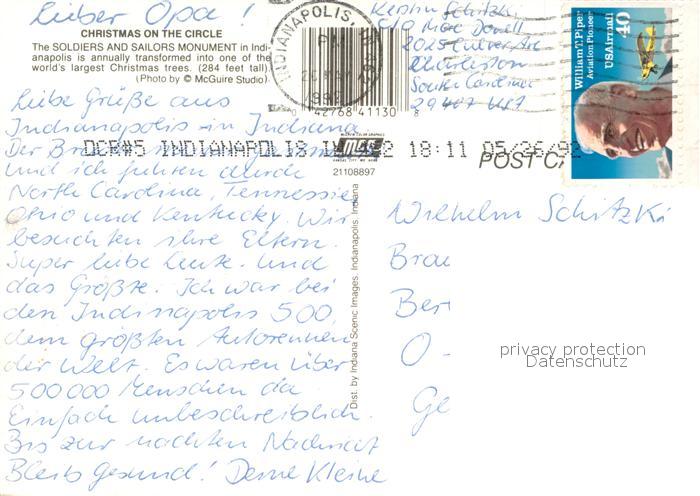 Lieber Opa!
CHRISTMAS ON THE CIRCLE
The SOLDIERS AND SAILORS MONUMENT in Indi-
anapolis is annually transformed into one of the
world's largest Christmas trees. (284 feet tall)
(Photo by © McGuire Studio)
INDIANAPOLIS, IN
0 42768 41130 8
Kerstin Schitzki
2025
Charleston
South Carolina
29407 USA
William T. Piper
Aviation Pioneer
USAirmail
40
Liebe Grüße aus
Indianapolis in Indiana
Der
DCR#5 INDIANAPOLIS IN 462 18:11 05/26/92
POST CA
MWM
21108897
und ich fuhren durch
North Carolina, Tennessie
Ohio und Kentucky. Wir
besuchten ihre Eltern.
Super liebe Leute. Und
das Größte. Ich war bei
den Indianapolis 500,
dem größten Autorennen
der Welt. Es waren über
500000 Menschen da
Einfach unbeschreiblich.
Bis zur nächsten Nachricht
Bleib gesund! Deine Kleine
Dist. by Indiana Scenic Images, Indianapolis, Indiana
Wilhelm Schitzki
Brau
Ber
O-
Ge
privacy protection
Datenschutz